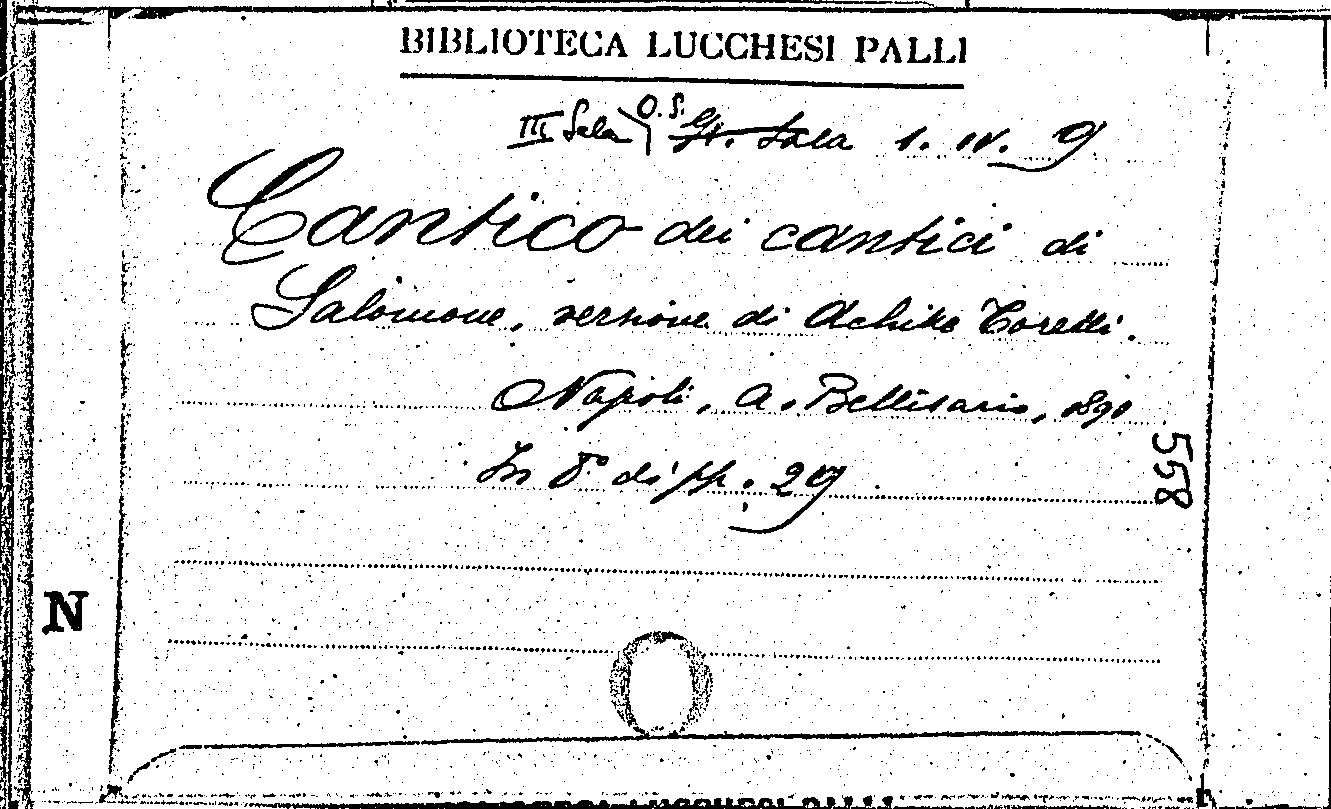 BIBLIOTECA LUCCHESI PALLI
III Sala O. S. Gr. Sala 1. IV. 9
Cantico dei cantici di
Salomone, versione di Achille Torelli.
Napoli, A. Bellisario, 1890
In 8° di pp. 29
558
N
BIBLIOTECA LUCCHESI PALLI